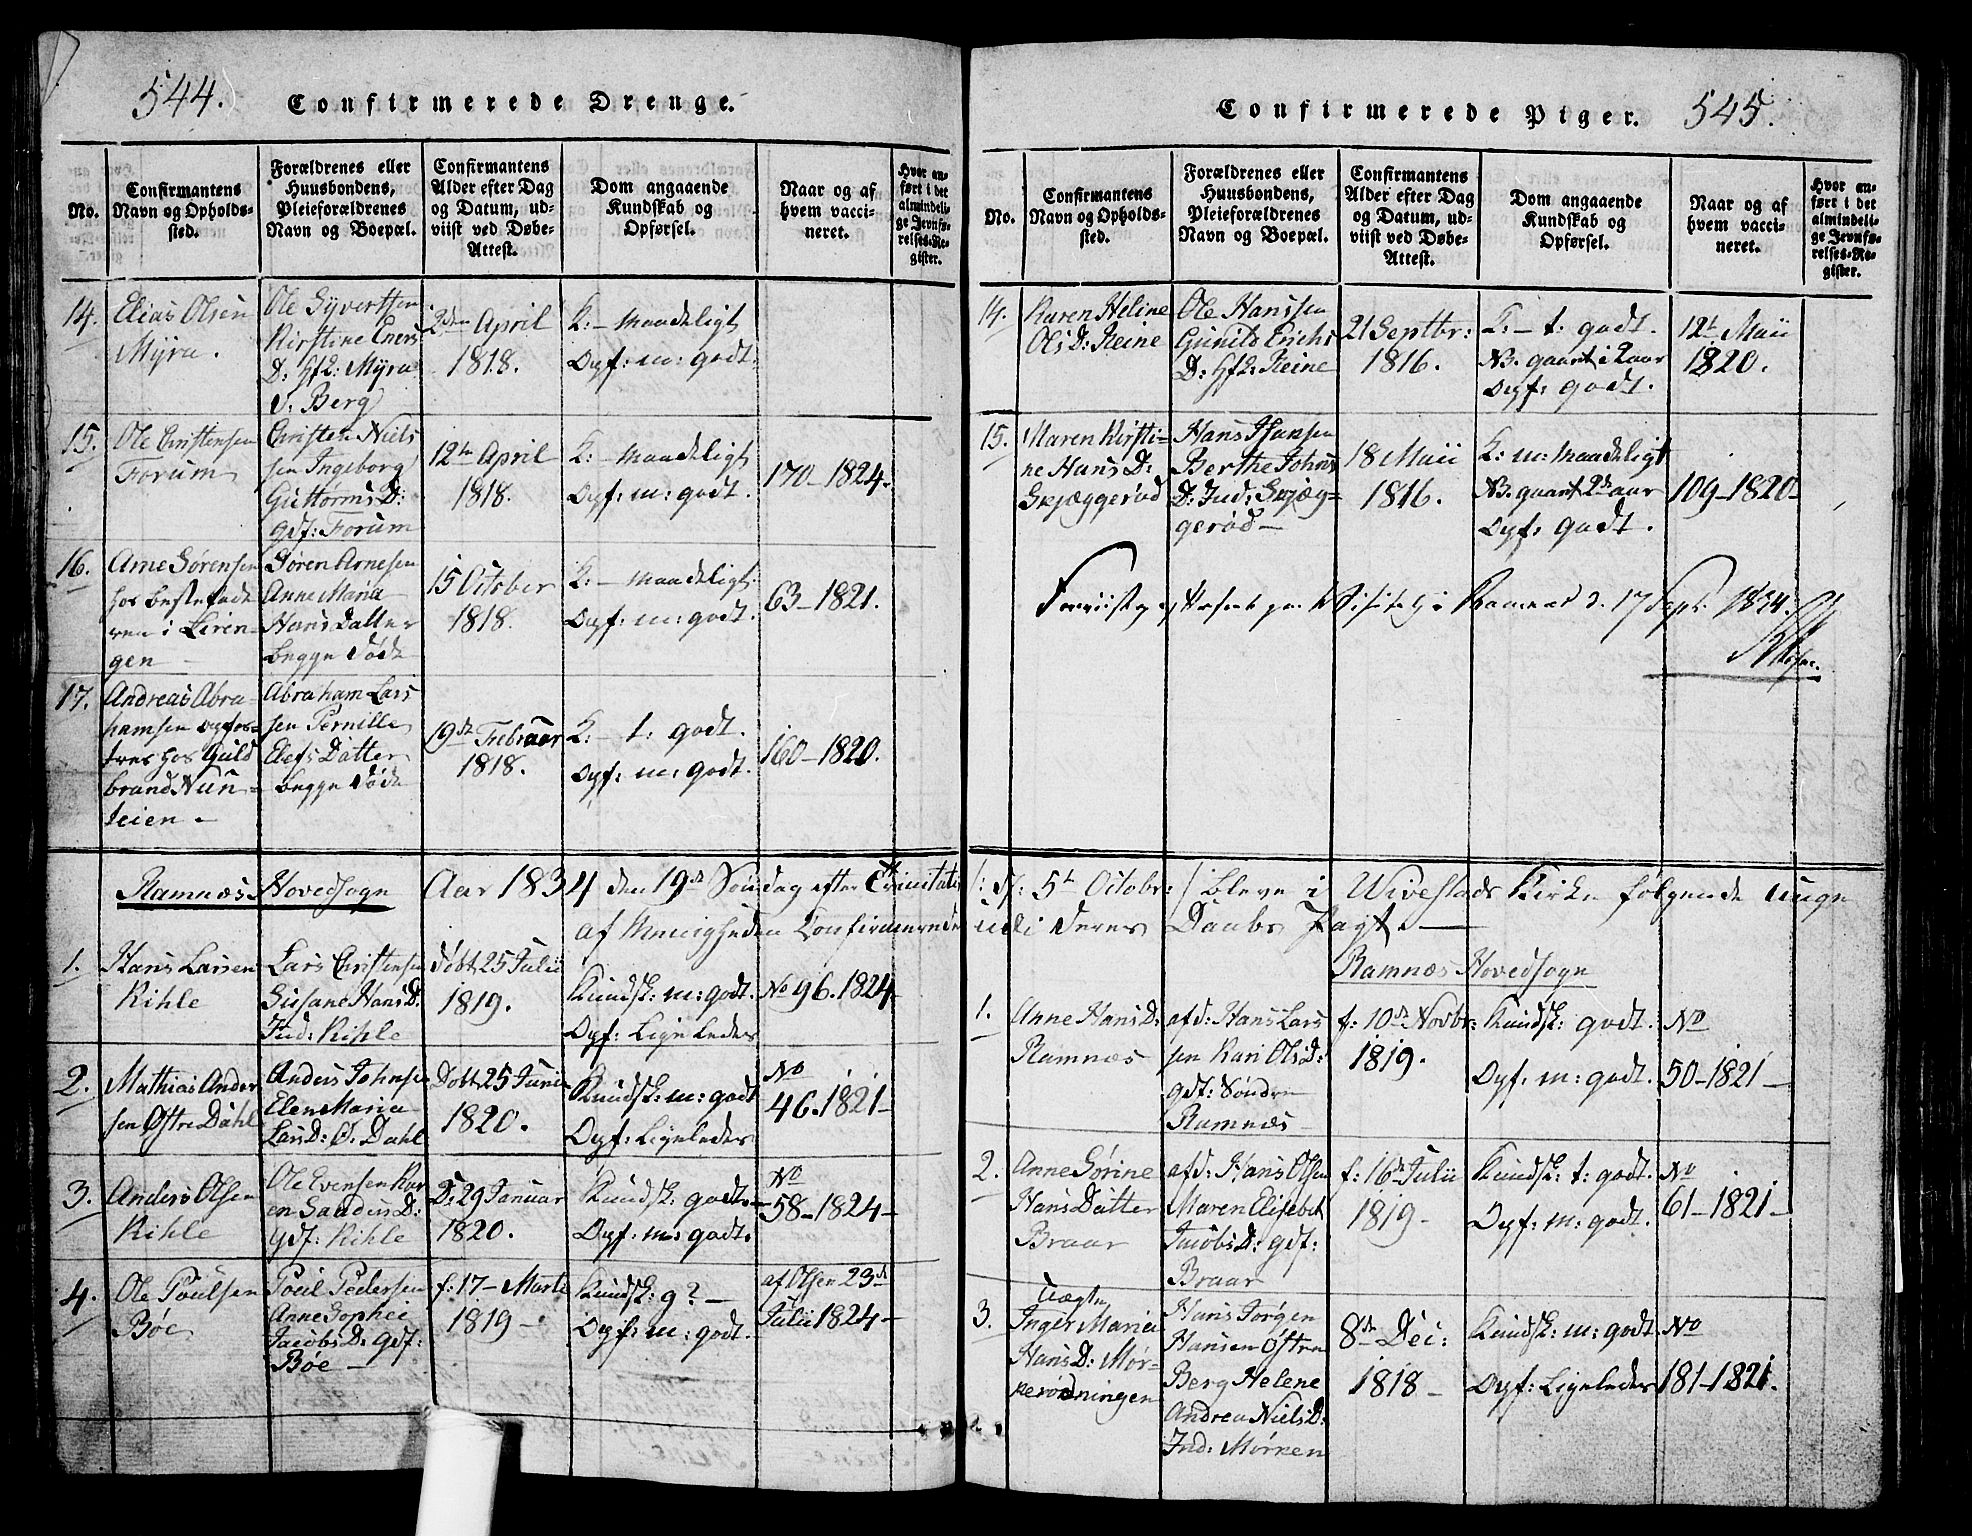 544.
Confirmerede Drenge.
No.
Confirmantens
Navn og Opholds-
sted.
Forældrenes eller
Huusbondens,
Pleieforældrenes
Navn og Boepæl.
Confirmantens
Alder efter Dag
og Datum, ud-
viist ved Døbe-
Attest.
Dom angaaende
Kundskab og
Opførsel.
Naar og af
hvem vacci-
neret.
Hvor an-
ført i det
almindeli-
ge Jevnfø-
relses-Re-
gister.
14.
Elias Olsen
Myra.
Ole Syvertsen
Kirstine Eners
D: Hfl: Myra
u. Berg
2den April
1818.
K: — maadeligt
Opf: m: godt.
15.
Ole Christensen
Forum
Christen Niels
sen Ingeborg
Guttorms D:
gdf: Forum
12te April
1818.
K: — maadeligt
Opf: m: godt.
170-1824.
16.
Arne Sørensen
hos Bestefade
ren i Liren-
gen —
Søren Arnesen
Anne Maria
Hans Datter
begge Døde
15 October
1818.
K: — maadeligt.
Opf: m: godt.
63-1821.
17.
Andreas Abra-
hamsen opfos-
tres hos Guld
brand Nun-
teien -
Abraham Lars
sen Pernille
Elefs Datter
begge Døde
19de Februar
1818.
K: — t: godt.
Opf: m: godt.
160-1820.
Ramnæs Hovedsogn Aar 1834 den 19de Søndag efter Trinitatis
af Menigheden Confirmerede
1.
Hans Larsen
Kihle
Lars Christensen
Susane Hans D:
Ind: Kihle
Døbt 25 Julii
1819.
Kundsk: m: godt.
Opf: Ligeledes
No 96. 1824-
2.
Mathias Ander
sen Østre Dahl
Anders Johnsen
Elen Maria
Lars D: Ø. Dahl
Døbt 25 Junii
1820.
Kundsk: m: godt
Opf: Ligeledes
No
46. 1821-
3.
Anders Olsen
Kihle
Ole Evensen Kar
en Sanders D:
Gdf: Kihle
D: 29 Januar
1820.
Kundsk: godt.
Opf: m: godt.
No
58-1824-
4.
Ole Poulsen
Bøe
Poul Pedersen
Anne Sophie
Jacobs D: gdf:
Bøe —
f: 17- Marti
1819-
Kundsk: g? —
Opf: m: godt.
af Olsen 23de
Julii 1824-
Confirmerede Piger.
545.
No.
Confirmantens
Navn og Opholds-
sted.
Forældrenes eller
Huusbondens,
Pleieforældrenes
Navn og Boepæl.
Confirmantens
Alder efter Dag
og Datum, ud-
viist ved Døbe-
Attest.
Dom angaaende
Kundskab og
Opførsel.
Naar og af
hvem vacci-
neret.
Hvor an-
ført i det
almindeli-
ge Jevnfø-
relses-Re-
gister.
14.
Karen Heline
Ols D: Reine
Ole Hanssen
Gunild Erichs
D: Hfl: Reine
21 Septbr:
1816.
K: — t: godt.
NB. gaaet i 2 aar
Opf: godt.
12te Maii
1820.
15.
Maren Kirsti-
ne Hans D:
Skjæggerød
Hans Hansen
Berthe Johns
D: Ind: Skjæg-
gerød —
18 Maii
1816.
K: m: maadeligt
NB. gaaet 2de aar
Opf: godt.
109-1820-
i Ramnæs d. 17 Sept. 1834.
/: d: 5te Octobr: / bleve i Wivestads Kirke følgende unge
udi deres Daabs Pagt. —
Ramnæs Hovedsogn
1.
Anne Hans D:
Ramnæs
afd: Hans Lars
sen Kari Ols D:
gdf: Søndre
Ramnæs —
f: 10de Novbr:
1819.
Kundsk: godt.
Opf: m: godt.
No
50-1821-
2.
Anne Sørine
Hans Datter
Braar
afd: Hans Olsen
Maren Elisebet
Jacobs D: gdf:
Braar
f: 16de Julii
1819-
Kundsk: t: godt.
Opf: m: godt.
No
61-1821-
3.
Uægte
Inger Maria
Hans D: Mør-
kerødningen
Hans Jørgen
Hansen Østre
Berg Helene
Andrea Niels D:
Ind: Mørken
8de Dec:
1818-
Kundsk: m: godt.
Opf: Ligeledes
No
181-1821.